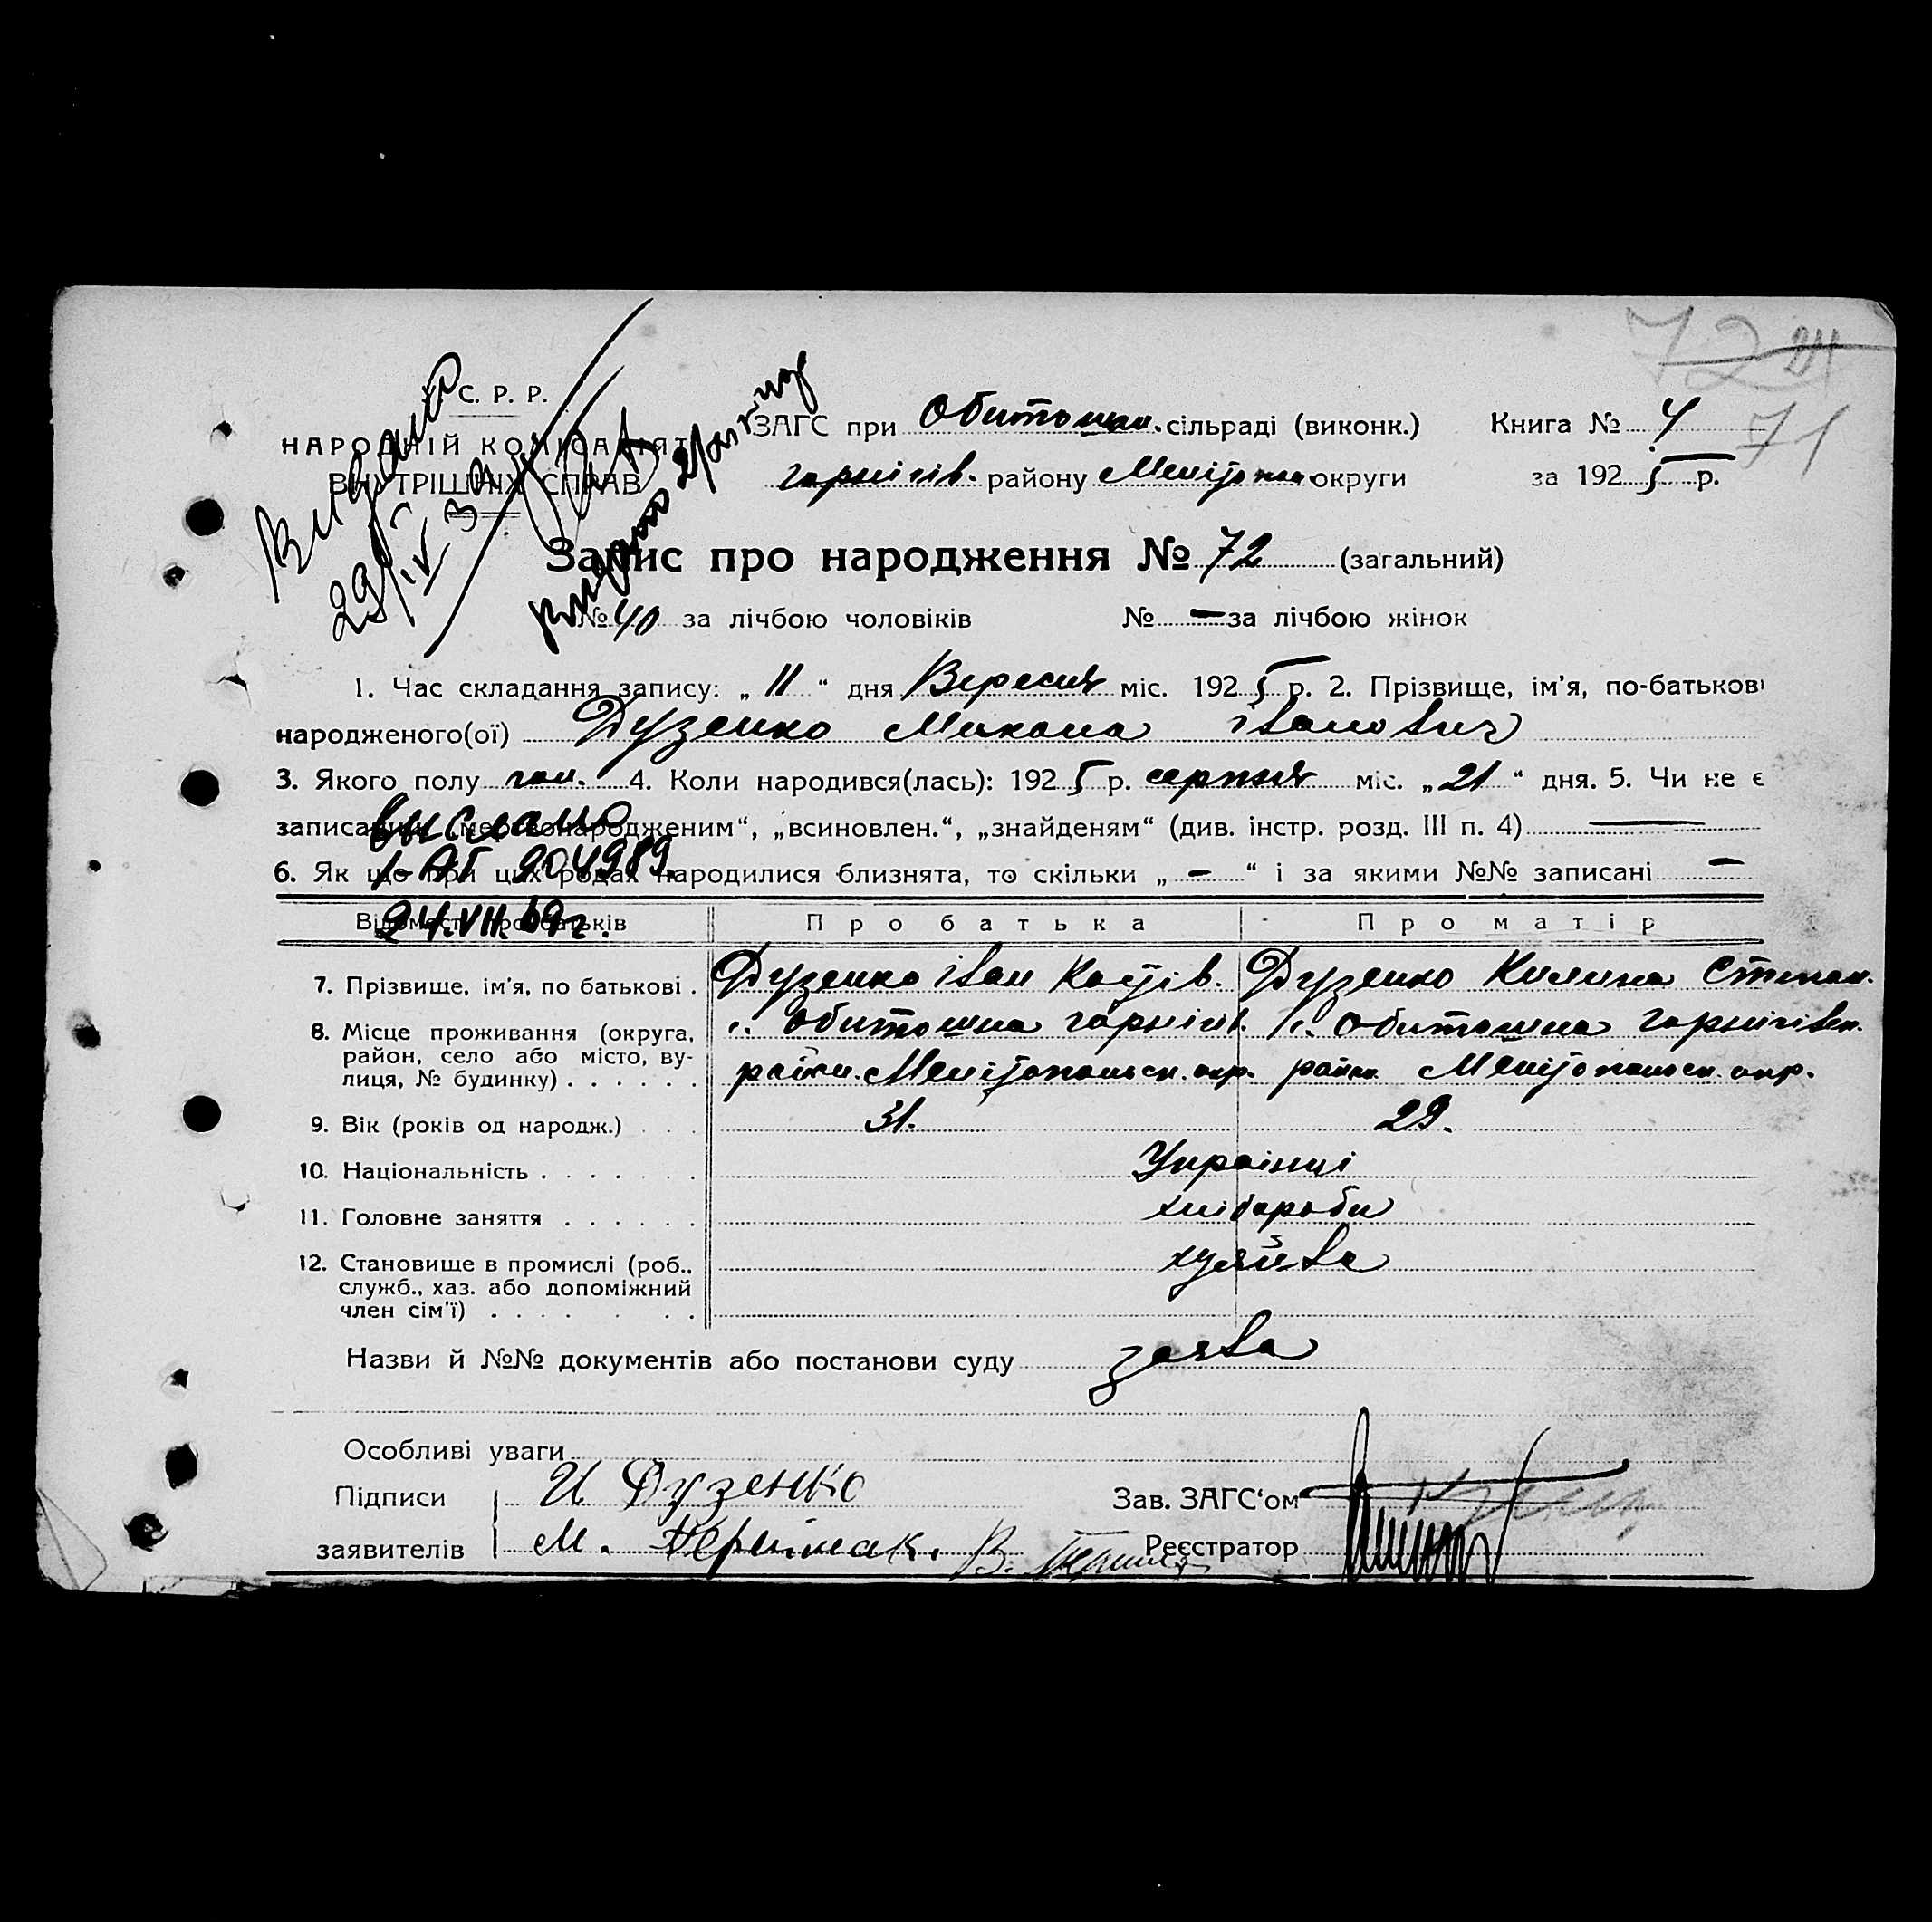 72 24
71
Видано
29/IV 39
У. С. Р. Р.
НАРОДНІЙ КОМІСАРІЯТ
ВНУТРІШНІХ СПРАВ
ЗАГС при Обитошн. сільраді (виконк.) Книга № 4
чорнігів. району Мелітопол округи за 1925 р.
Запис про народження № 72 (загальний)
№ 40 за лічбою чоловіків № — за лічбою жінок
1. Час складання запису: „ 11 “ дня Вересня міс. 1925 р. 2. Прізвище, ім'я, по-батькові
народженого(ої) Дузенко Микола Іванович
3. Якого полу чол. 4. Коли народився(лась): 1925 р. серпня міс. „ 21 “ дня. 5. Чи не є
записаний „мертвонародженим“, „всиновлен.“, „знайденям“ (див. інстр. розд. III п. 4) —
выслано
6. Як що при цих родах народилися близнята, то скільки „ — “ і за якими №№ записані —
I-АП 204989.
24.VII.69г.
Відомості про батьків Про батька Про матір
7. Прізвище, ім'я, по батькові . Дузенко Іван Костів. Дузенко Килина Степан.
8. Місце проживання (округа, район, село або місто, вулиця, № будинку) . . . . . . с. Обитошна чорнігів. с. Обитошна чорнігівськ.
район. Мелітопольськ. окр. район Мелітопольськ. окр.
9. Вік (років од народж.) . . . 31. 29.
10. Національність . . . . . . . Українці
11. Головне заняття . . . . . . хлібороби
12. Становище в промислі (роб., служб., хаз. або допоміжний член сім'ї) . . . . . . . хузяйства
Назви й №№ документів або постанови суду заява
Особливі уваги
Підписи И Дузенко Зав. ЗАГС‘ом
заявителів М. В. Реєстратор